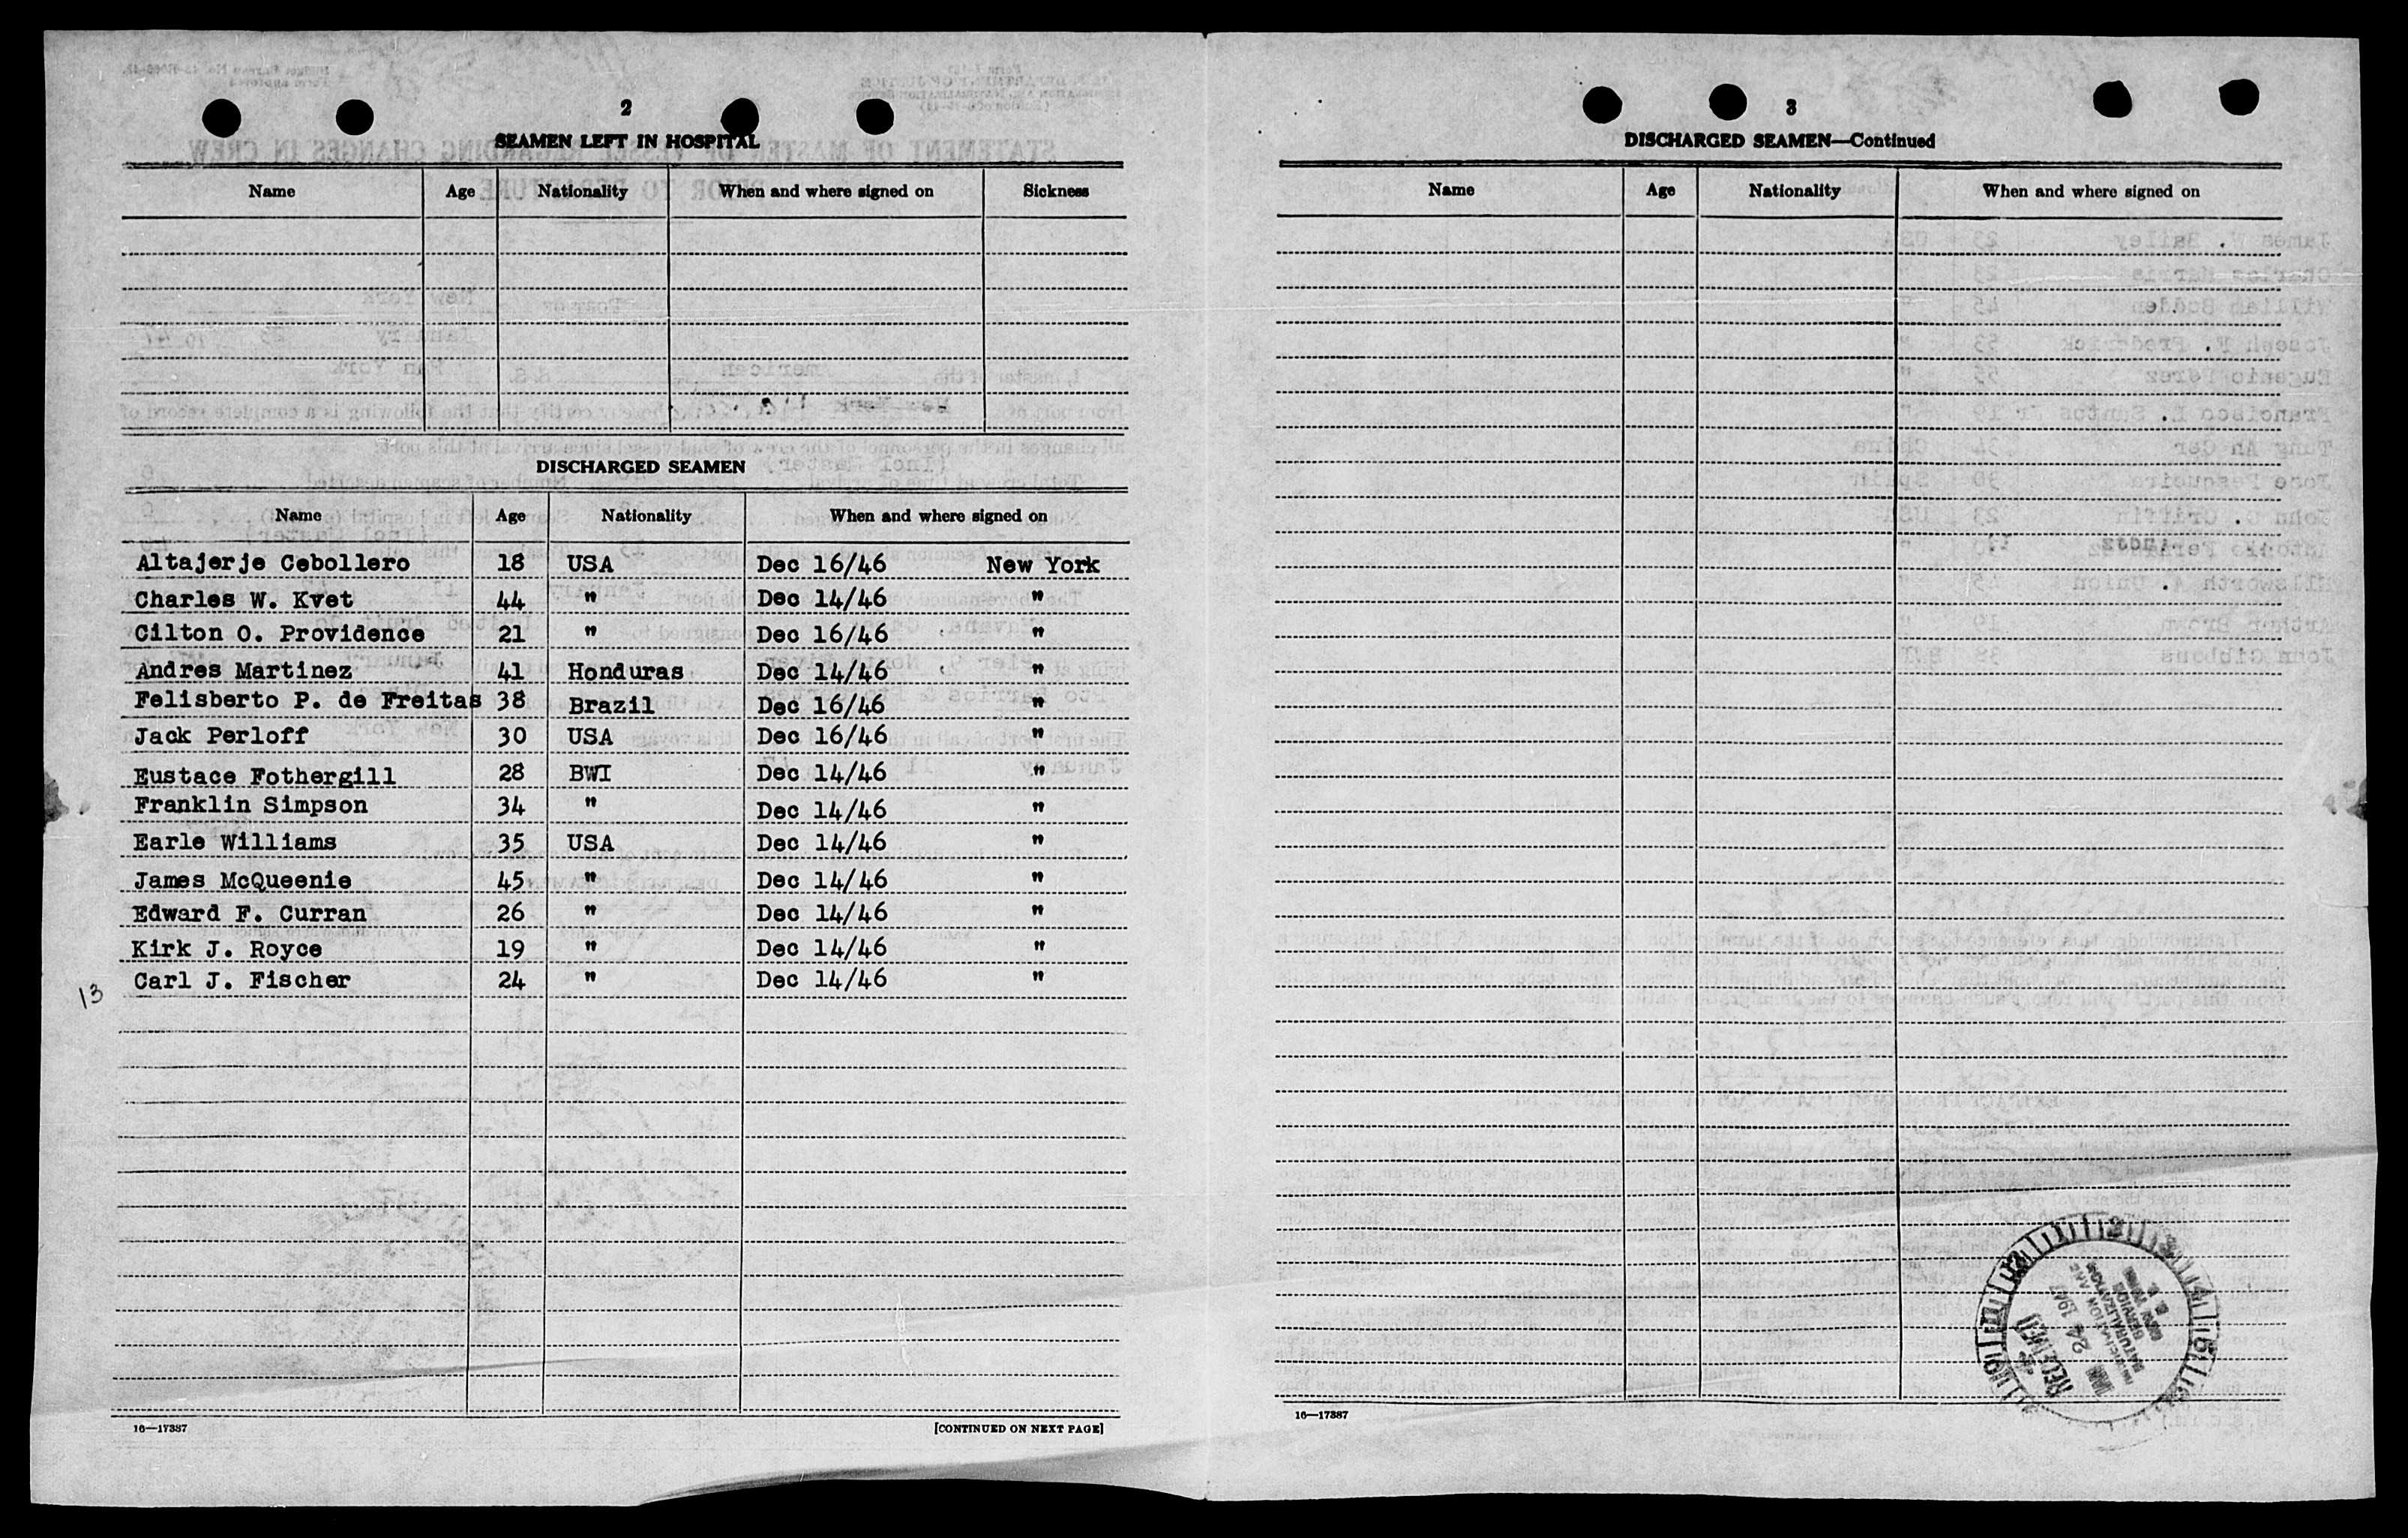 2
SEAMEN LEFT IN HOSPITAL
Name Age Nationality When and where signed on Sickness
DISCHARGED SEAMEN
Name Age Nationality When and where signed on
Altajerje Cebollero 18 USA Dec 16/46 New York
Charles W. Kvet 44 " Dec 14/46 "
Cilton O. Providence 21 " Dec 16/46 "
Andres Martinez 41 Honduras Dec 14/46 "
Felisberto P. de Freitas 38 Brazil Dec 16/46 "
Jack Perloff 30 USA Dec 16/46 "
Eustace Fothergill 28 BWI Dec 14/46 "
Franklin Simpson 34 " Dec 14/46 "
Earle Williams 35 USA Dec 14/46 "
James McQueenie 45 " Dec 14/46 "
Edward F. Curran 26 " Dec 14/46 "
Kirk J. Royce 19 " Dec 14/46 "
13 Carl J. Fischer 24 " Dec 14/46 "
16—17387 [CONTINUED ON NEXT PAGE]
3
DISCHARGED SEAMEN—Continued
Name Age Nationality When and where signed on
RECEIVED
JAN 24 1947
NATURALIZATION
SERVICE
16—17387